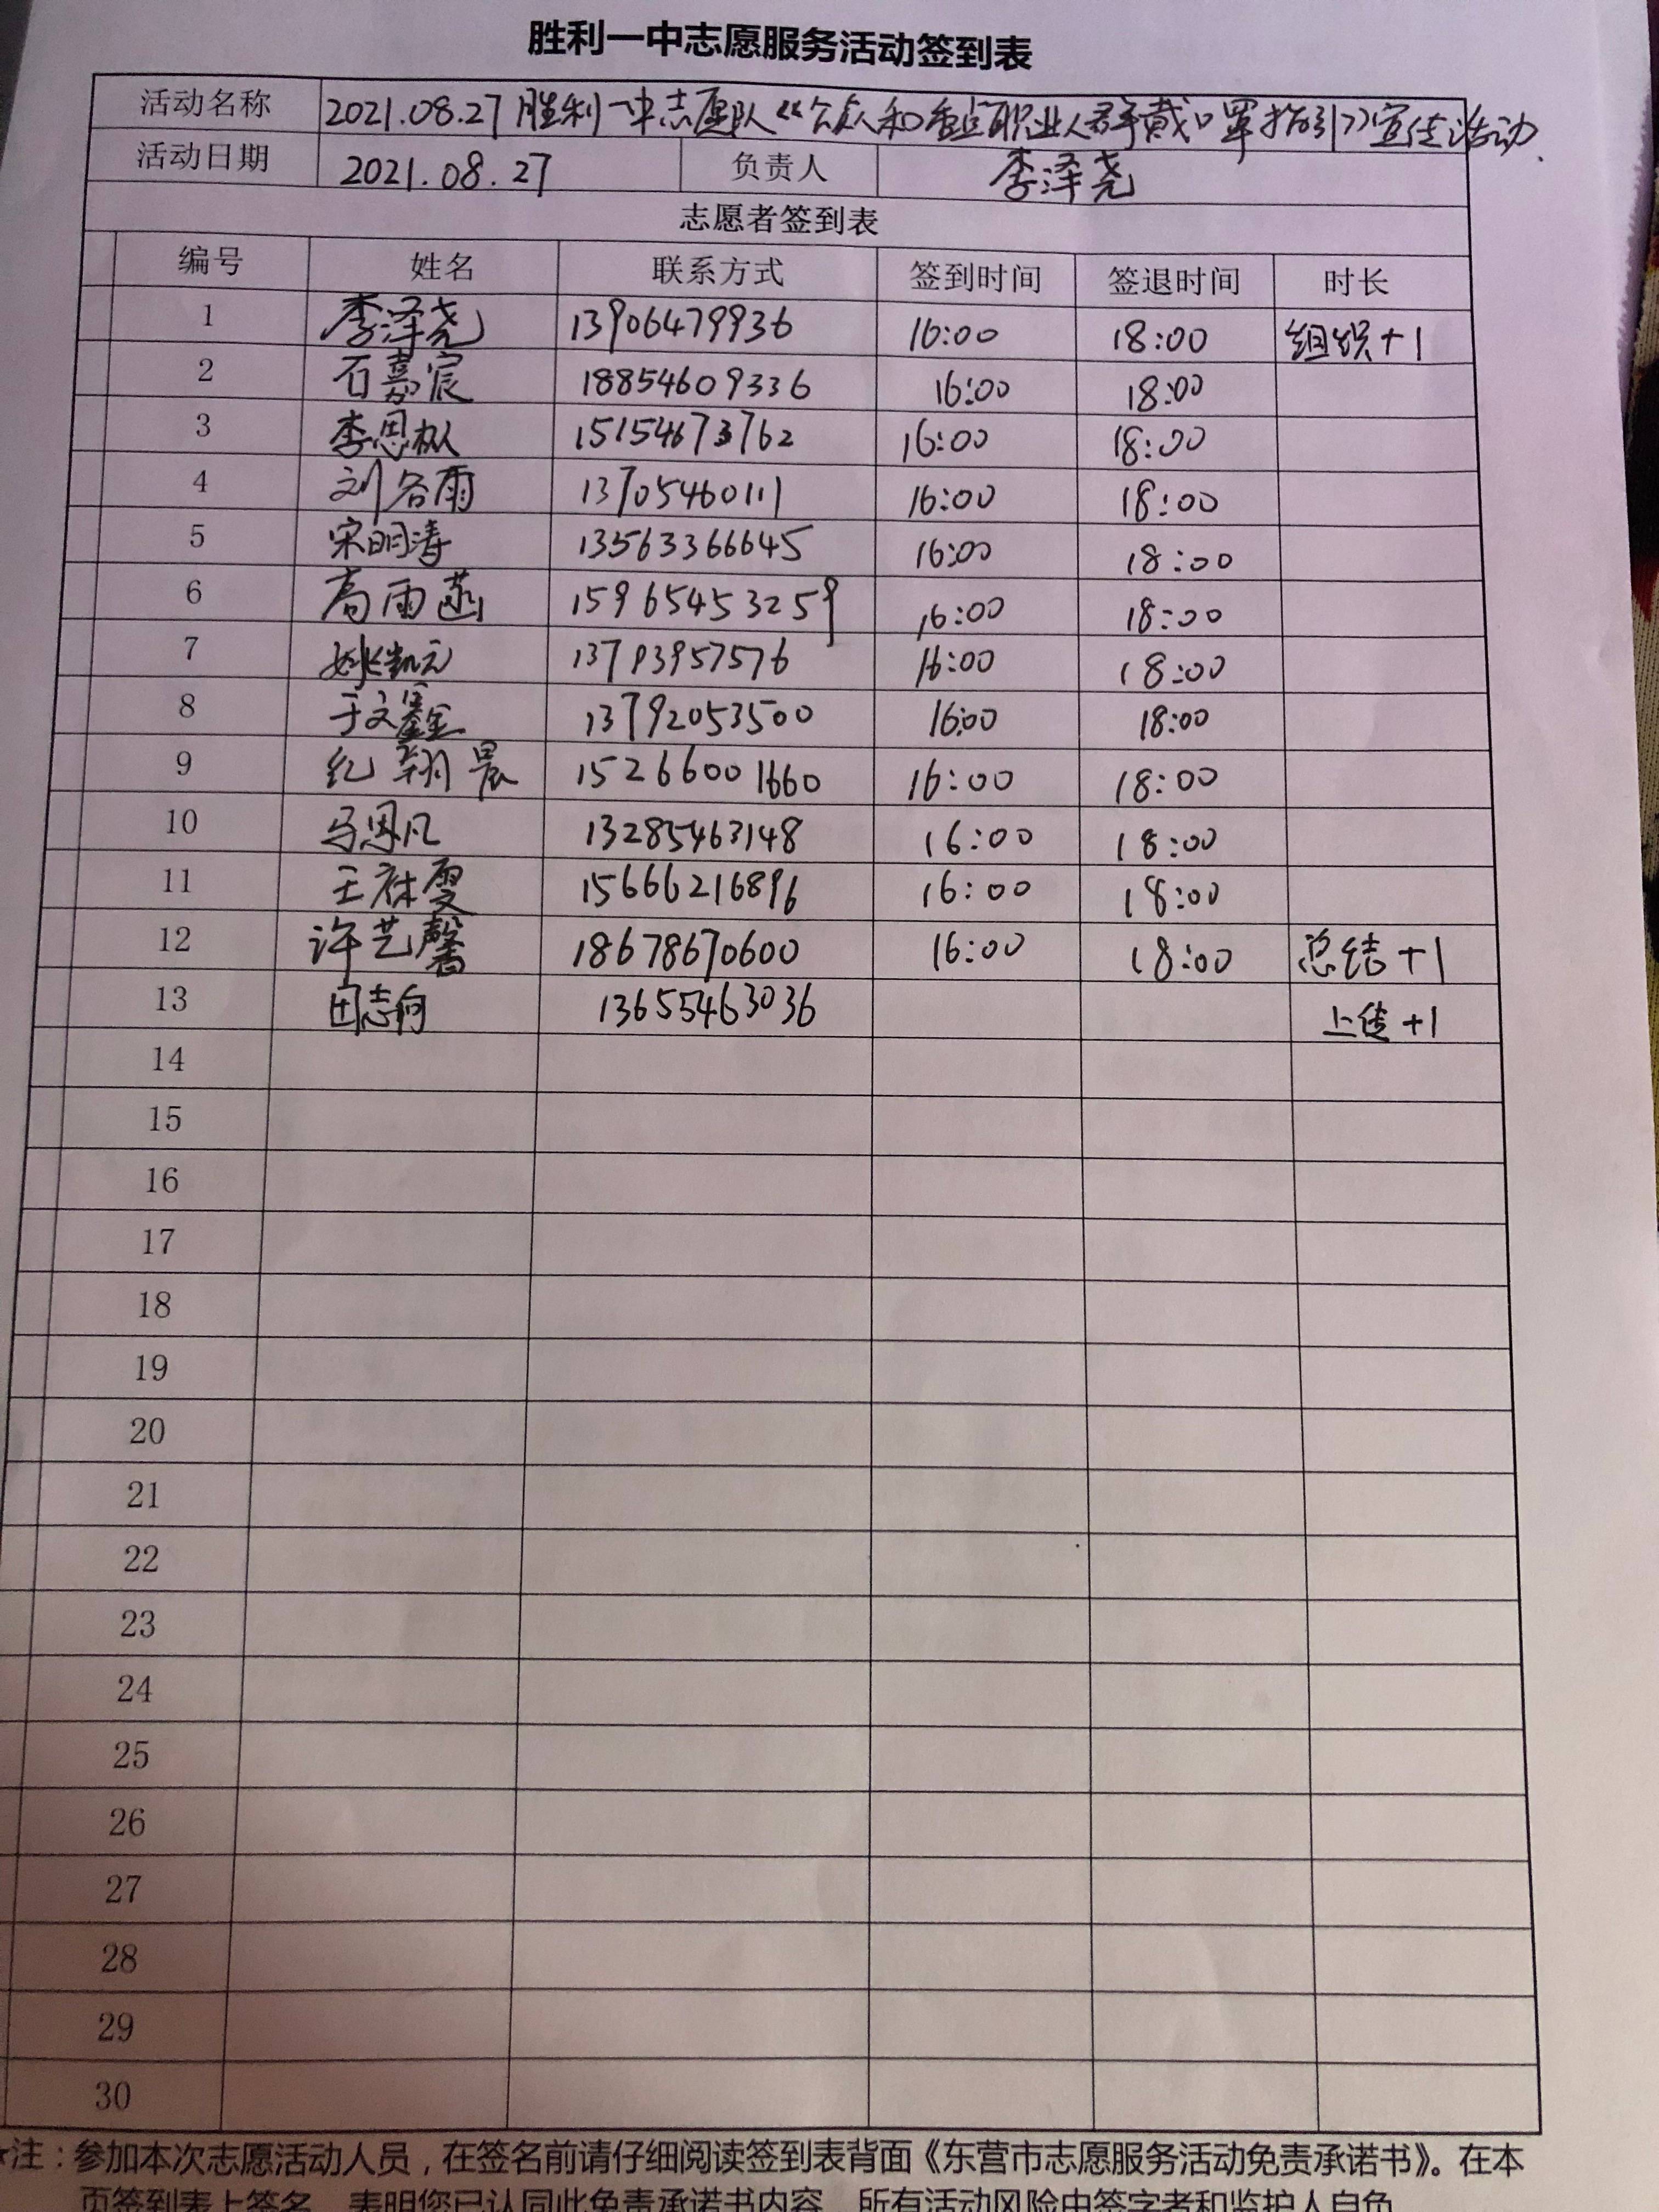 胜利一中志愿服务活动签到表
活动名称 2021.08.27胜利一中志愿队《公众和重点职业人群戴口罩指引》宣传活动.
活动日期 2021.08.27 负责人 李泽尧
志愿者签到表
编号 姓名 联系方式 签到时间 签退时间 时长
1 李泽尧 13906479936 16:00 18:00 组织+1
2 石嘉宸 18854609336 16:00 18:00
3 李思枞 15154673762 16:00 18:00
4 刘谷雨 13705460111 16:00 18:00
5 宋明涛 13563366645 16:00 18:00
6 高雨菡 15965453259 16:00 18:00
7 姚凯元 13793957576 16:00 18:00
8 于文鑫 13792053500 16:00 18:00
9 纪翔晨 15266001660 16:00 18:00
10 马恩凡 13285463148 16:00 18:00
11 王秣雯 15666216896 16:00 18:00
12 许艺馨 18678670600 16:00 18:00 总结+1
13 田志向 13655463036 上传+1
14
15
16
17
18
19
20
21
22
23
24
25
26
27
28
29
30
注：参加本次志愿活动人员，在签名前请仔细阅读签到表背面《东营市志愿服务活动免责承诺书》。在本
页签到表上签名，表明您已认同此免责承诺书内容，所有活动风险由签字者和监护人自负